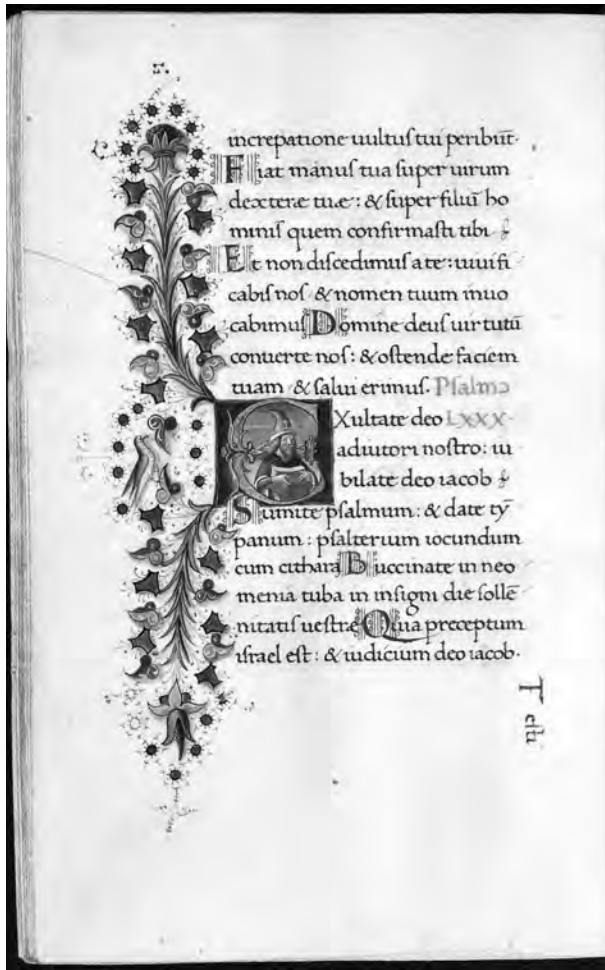 increpatione uultus tui peribūt·
Fiat manus tua super uirum
dexteræ tuæ: & super filiū ho
minis quem confirmasti tibi
Et non discedimus a te: uiuifi
cabis nos & nomen tuum inuo
cabimus Domine deus uirtutū
conuerte nos: & ostende faciem
tuam & salui erimus. Psalmo
Exultate deo LXXX·
adiutori nostro: iu
bilate deo iacob
Sumite psalmum: & date tȳ
panum: psalterium iocundum
cum cithara Buccinate in neo
menia tuba in insigni die sollē
nitatis uestræ Quia preceptum
israel est: & iudicium deo iacob·
Testi